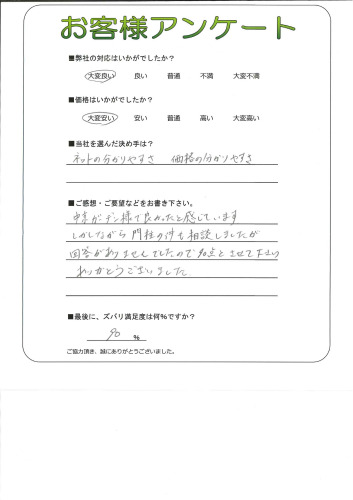 お客様アンケート
■弊社の対応はいかがでしたか？
大変良い 良い 普通 不満 大変不満
■価格はいかがでしたか？
大変安い 安い 普通 高い 大変高い
■当社を選んだ決め手は？
ネットの分かりやすさ 価格の分かりやすさ
■ご感想・ご要望などをお書き下さい。
ガーデン様で良かったと感じています
しかしながら 門柱の件も相談しましたが
回答がありませんでしたので90点とさせて下さい
ありがとうございました
■最後に、ズバリ満足度は何%ですか？
90 %
ご協力頂き、誠にありがとうございました。